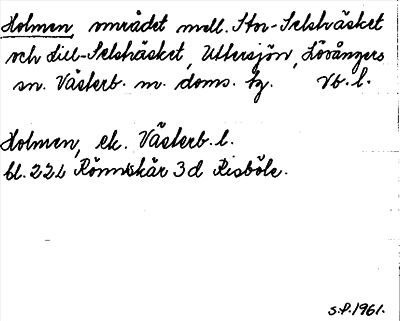 Holmen, området mell. Stor-Selsträsket
och Lill-Selsträsket, Uttersjön, Lövångers
sn. Västerb. m. doms. tg. Vb. l.
Holmen, ek. Västerb. l.
bl. 22 L Rönnskär 3 d Risböle.
S.P. 1961.